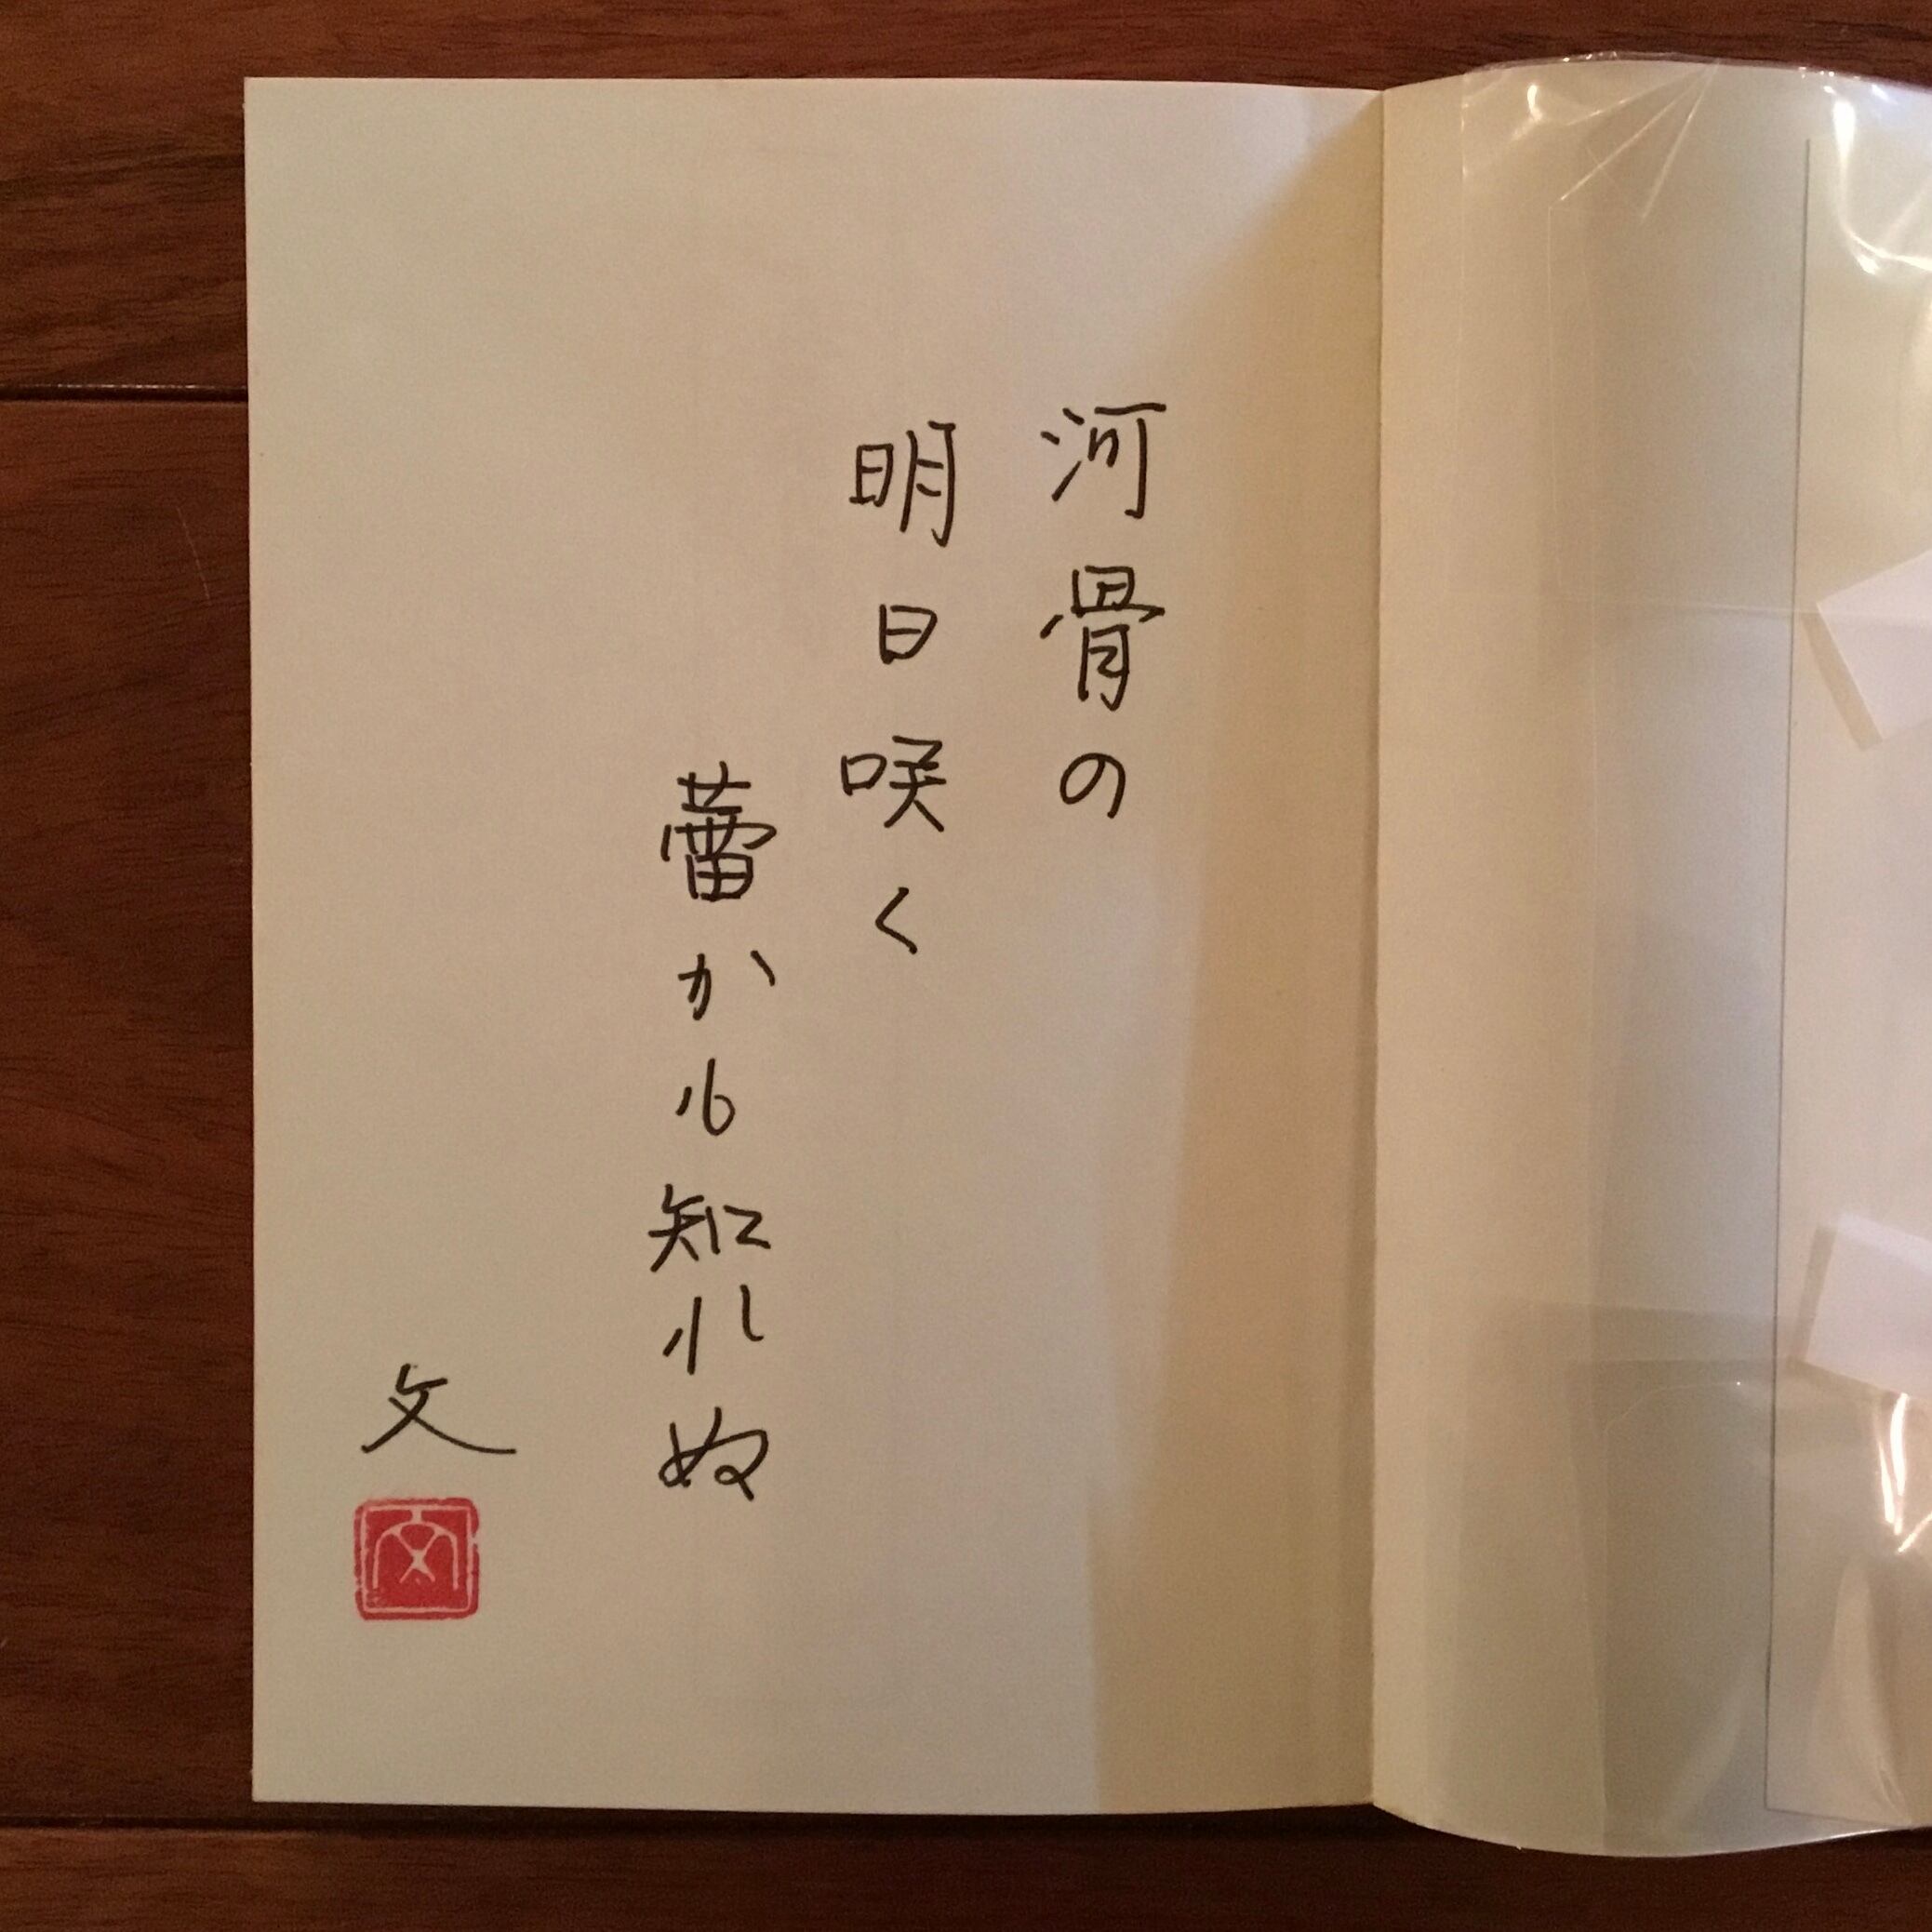 河骨の
明日咲く
蕾かも知れぬ
文
文